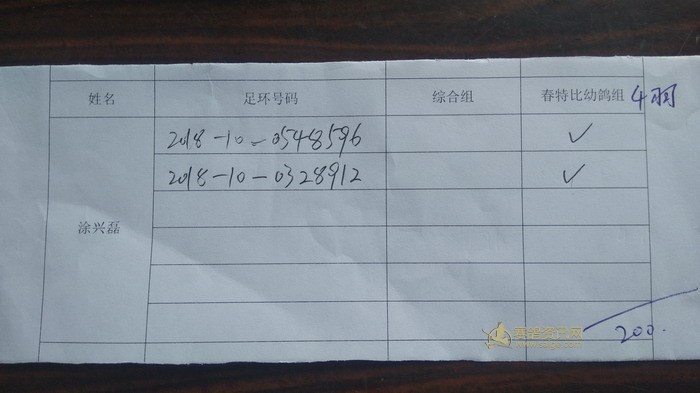 姓名 足环号码 综合组 春特比幼鸽组 4羽
2018-10-0548596 ✓
2018-10-0328912 ✓
涂兴磊
200.